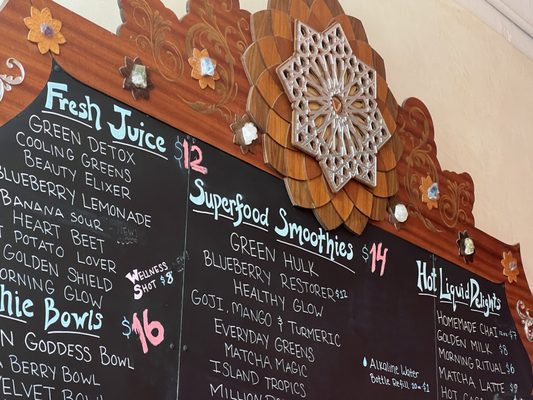 Fresh Juice $12
GREEN DETOX
COOLING GREENS
BEAUTY ELIXER
BLUEBERRY LEMONADE
BANANA SOUR
HEART BEET
POTATO LOVER
GOLDEN SHIELD
MORNING GLOW
WELLNESS
SHOT $8
Bowls $16
GODDESS BOWL
BERRY BOWL
VELVET BOWL
Superfood Smoothies $14
GREEN HULK
BLUEBERRY RESTORER $12
HEALTHY GLOW
GOJI, MANGO & TURMERIC
EVERYDAY GREENS
MATCHA MAGIC
ISLAND TROPICS
MILLION
Alkaline Water
Bottle Refill
Hot Liquid Delights
HOMEMADE CHAI
GOLDEN MILK $8
MORNING RITUAL $6
MATCHA LATTE $9
HOT